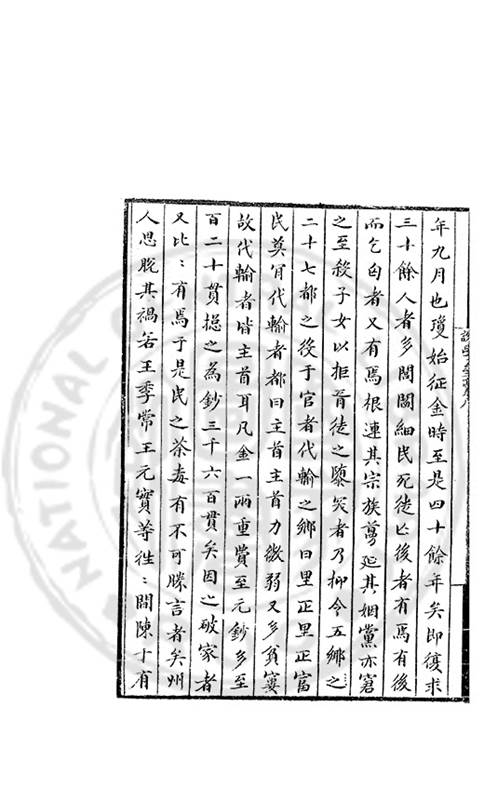 年九月也瓊始征金時至是四十餘年矣即復求
三十餘人者多閭閻細民死徒亡後者有焉有後
而乞匄者又有焉根連其宗族蔓延其姻黨亦窘
之至殺子女以拒胥徒之隳突者乃抑令五鄉之
二十七都之役于官者代輸之鄉曰里正里正富
民莫肯代輸者都曰主首主首力微弱又多貧窶
故代輸者皆主首耳凡金一兩重費至元鈔多至
百二十貫摠之為鈔三千六百貫矣因之破家者
又比〻有焉于是民之荼毒有不可勝言者矣州
人思脫其禍若王季常王元實等往〻閽陳于有
NATIONAL